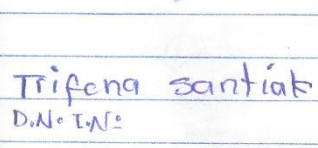 Trifena santiak
D.Nº I.Nº